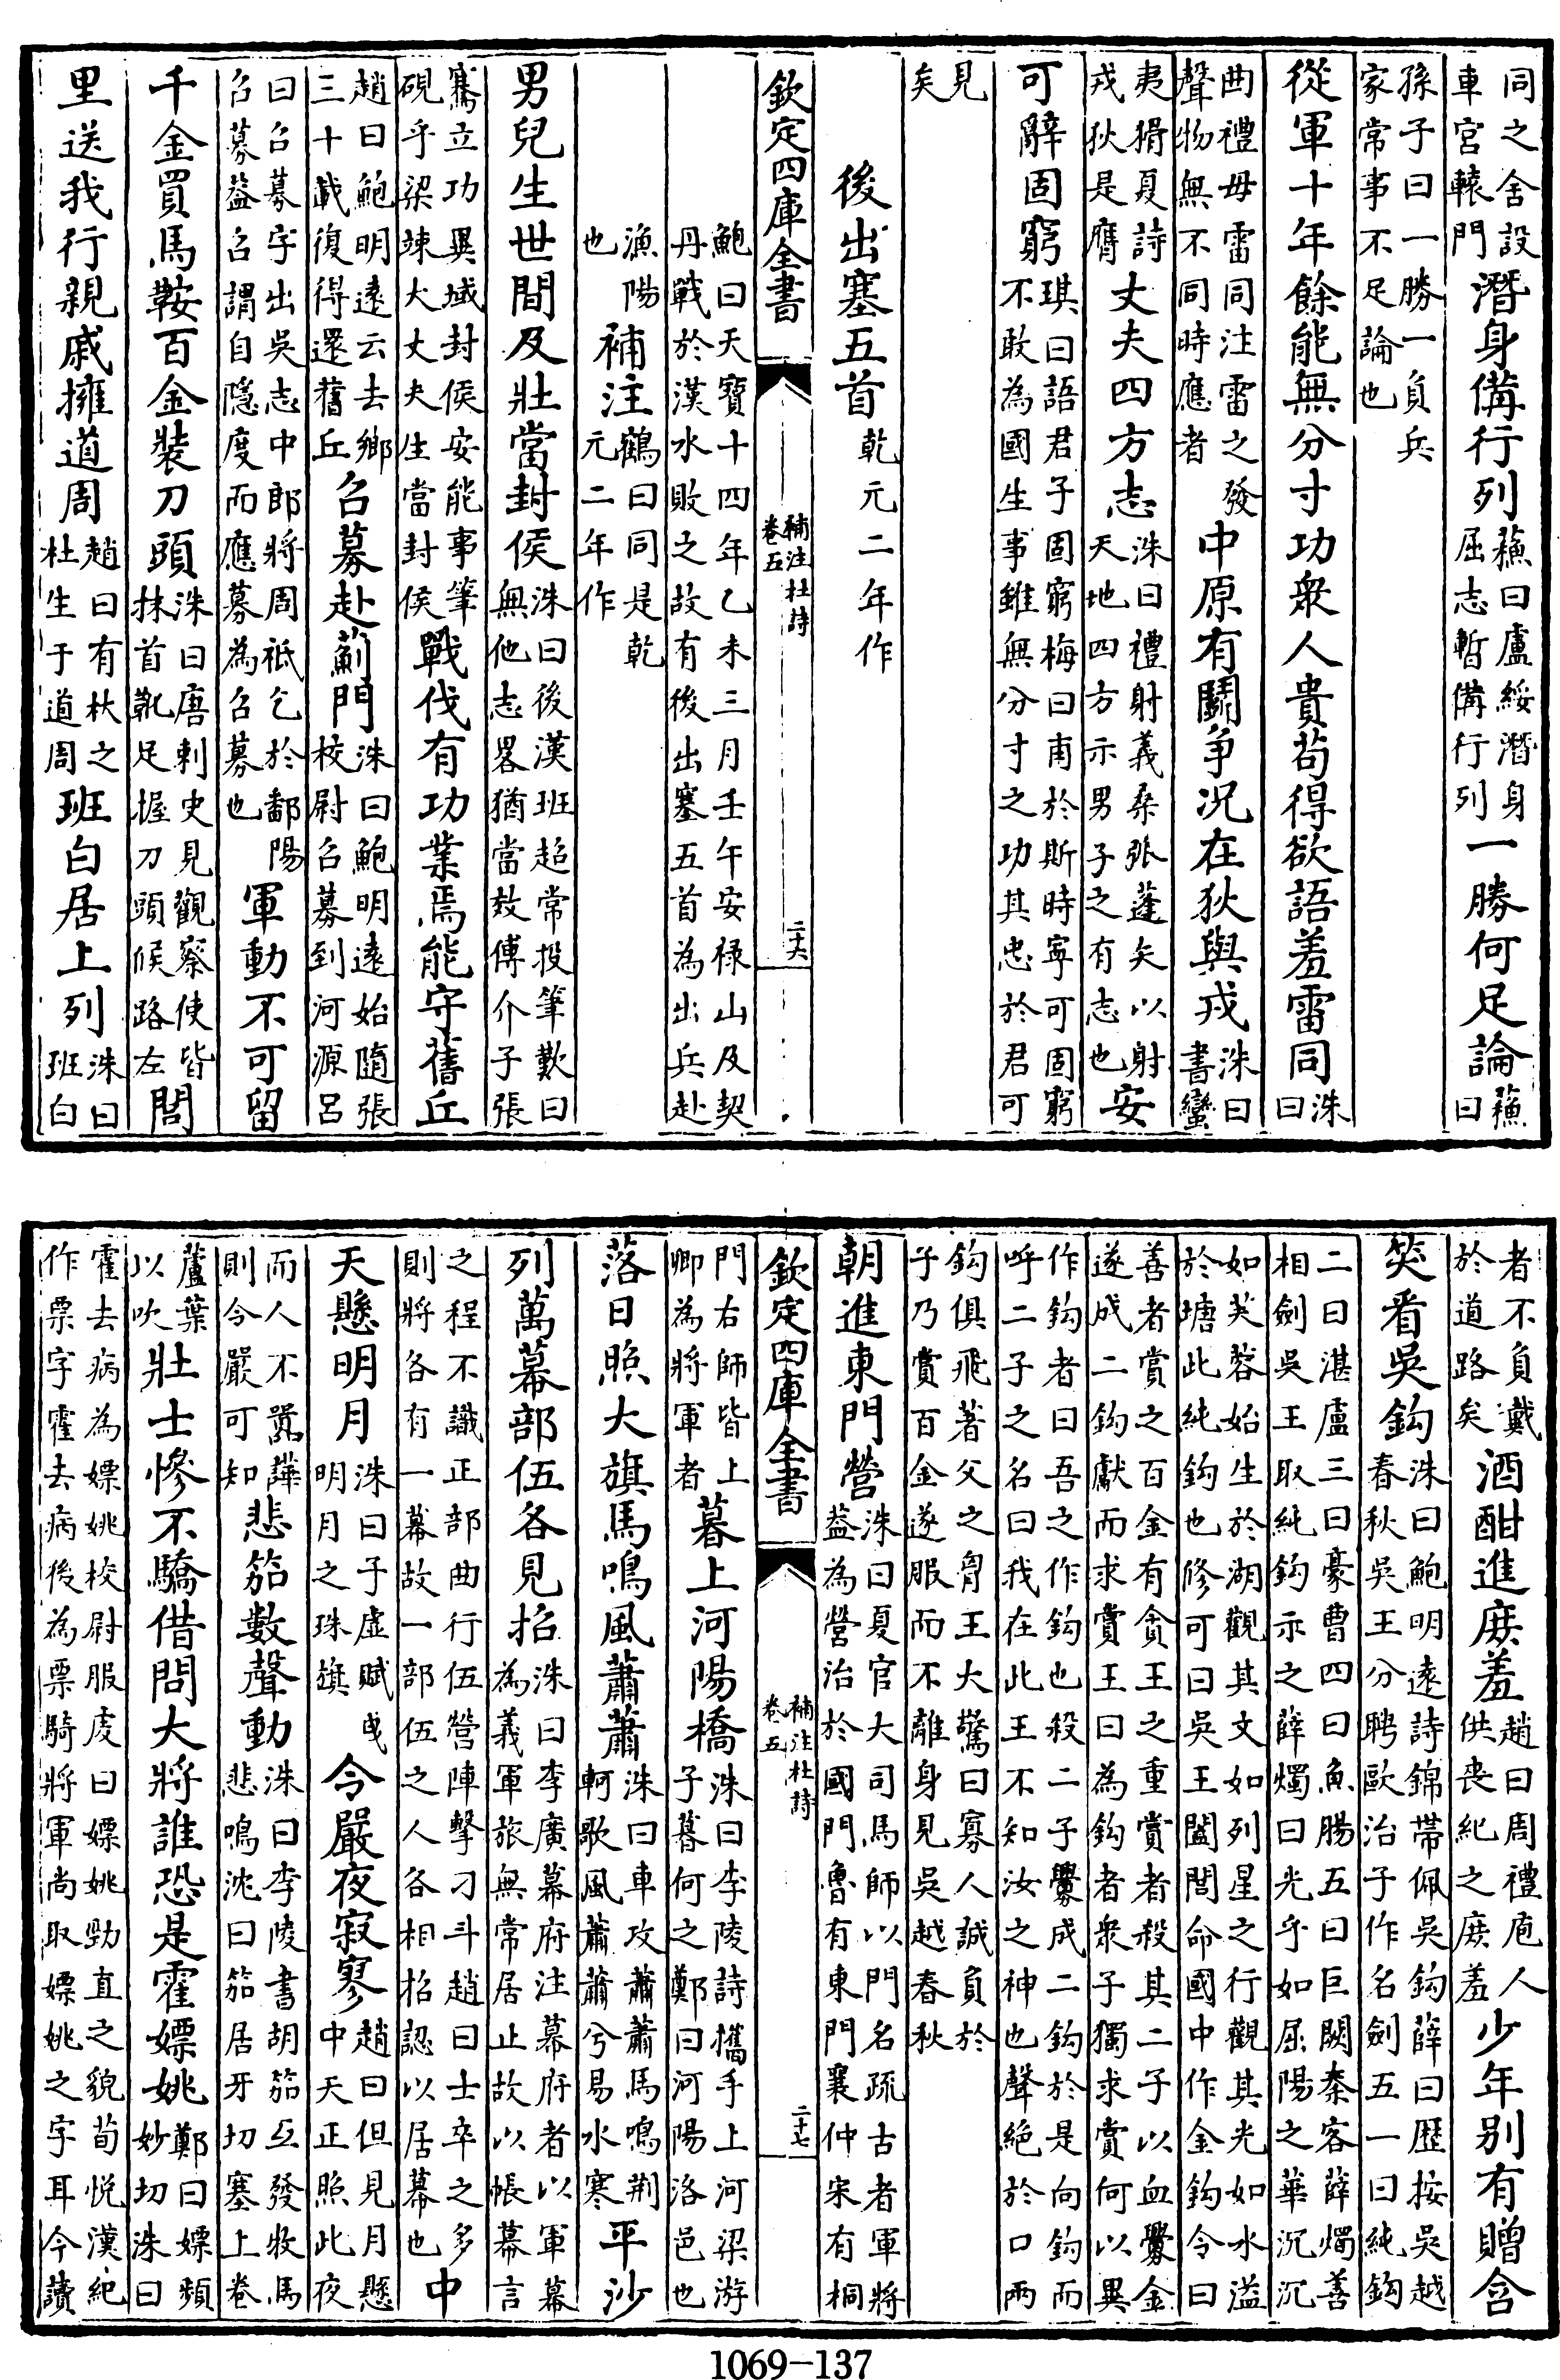 同之舍設車宮轅門潛身備行列蘓曰盧綏潛身屈志暫備行列一勝何足論蘓曰
孫子曰一勝一負兵家常事不足論也
從軍十年餘能無分寸功衆人貴茍得欲語羞雷同洙曰
曲禮毋雷同注雷之發聲物無不同時應者中原有鬭爭況在狄與戎洙曰書蠻
夷猾夏詩戎狄是膺丈夫四方志洙曰禮射義桑弧蓬矢以射天地四方示男子之有志也安
可辭固窮琪曰語君子固窮梅曰甫於斯時寧可固窮不敢為國生事雖無分寸之功其忠於君可
見矣
後出塞五首乾元二年作
欽定四庫全書 補注杜詩卷五 二十六
鮑曰天寶十四年乙未三月壬午安祿山及契丹戰於漢水敗之故有後出塞五首為出兵赴
漁陽也補注鶴曰同是乾元二年作
男兒生世間及壯當封侯洙曰後漢班超常投筆歎曰無他志畧猶當效傅介子張
騫立功異域封侯安能事筆硯乎梁竦大丈夫生當封侯戰伐有功業焉能守舊丘
趙曰鮑明遠云去鄉三十載復得還舊丘召募赴薊門洙曰鮑明遠始隨張校尉召募到河源呂
曰召募字出吳志中郎將周祗乞於鄱陽召募葢召謂自隱度而應募為召募也軍動不可留
千金買馬鞍百金裝刀頭洙曰唐刺史見觀察使皆抹首靴足握刀頭候路左閭
里送我行親戚擁道周趙曰有杕之杜生于道周班白居上列洙曰班白
者不負戴於道路矣酒酣進庶羞趙曰周禮庖人供喪紀之庶羞少年別有贈含
笑看吳鈎洙曰鮑明遠詩錦帶佩吳鈎薛曰歷按吳越春秋吳王分聘歐冶子作名劍五一曰純鈎
二曰湛盧三曰豪曹四曰魚腸五曰巨闕秦客薛燭善相劍吳王取純鈎示之薛燭曰光乎如屈陽之華沉沉
如芙蓉始生於湖觀其文如列星之行觀其光如水溢於塘此純鈎也修可曰吳王闔閭命國中作金鈎令曰
善者賞之百金有貪王之重賞者殺其二子以血釁金遂成二鈎獻而求賞王曰為鈎者衆子獨求賞何以異
作鈎者曰吾之作鈎也殺二子釁成二鈎於是向鈎而呼二子之名曰我在此王不知汝之神也聲絕於口兩
鈎俱飛著父之胷王大驚曰寡人誠負於子乃賞百金遂服而不離身見吳越春秋
朝進東門營洙曰夏官大司馬師以門名疏古者軍將葢為營治於國門魯有東門襄仲宋有桐
欽定四庫全書 補注杜詩卷五 二十七
門右師皆上卿為將軍者暮上河陽橋洙曰李陵詩攜手上河梁游子暮何之鄭曰河陽洛邑也
落日照大旗馬鳴風蕭蕭洙曰車攻蕭蕭馬鳴荆軻歌風蕭蕭兮易水寒平沙
列萬幕部伍各見招洙曰李廣幕府注幕府者以軍幕為義軍旅無常居止故以帳幕言
之程不識正部曲行伍營陣擊刁斗趙曰士卒之多則將各有一幕故一部伍之人各相招認以居幕也中
天懸明月洙曰子虛賦曳明月之珠旗令嚴夜寂寥趙曰但見月懸中天正照此夜
而人不囂譁則令嚴可知悲笳數聲動洙曰李陵書胡笳互發牧馬悲鳴沈曰笳居牙切塞上卷
蘆葉以吹壯士慘不驕借問大將誰恐是霍嫖姚鄭曰嫖頻妙切洙曰
霍去病為嫖姚校尉服虔曰嫖姚勁直之貌荀悅漢紀作票字霍去病後為票騎將軍尚取嫖姚之字耳今讀
1069-137